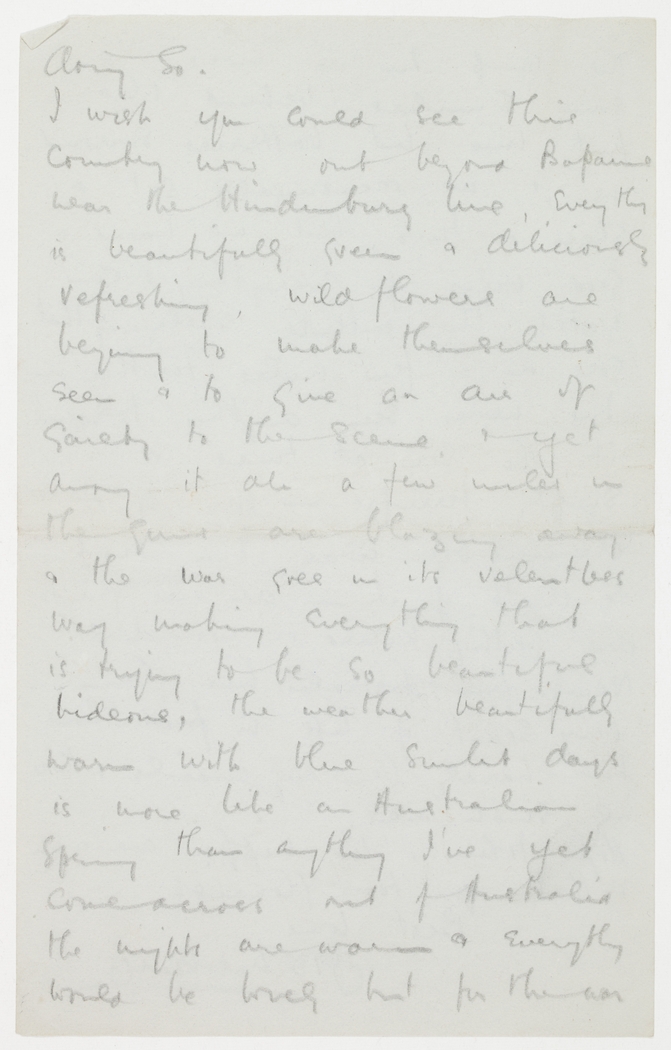 doing so.
I wish you could see this
Country now out beyond Bapaume
near the Hindenburg line, Everythg
is beautifully green & deliciously
refreshing, wildflowers are
begining to make themselves
seen & to give an air of
gaiety to the scene & yet
among it all a few miles on
the guns are blazing away
& the war goes on its relentless
way making everything that
is trying to be so beautiful
hideous, the weather beautifully
warm with blue sunlit days
is more like an Australian
Spring than anything I've yet
come across out of Australia
the nights are warm & everythg
would be lovely but for the war